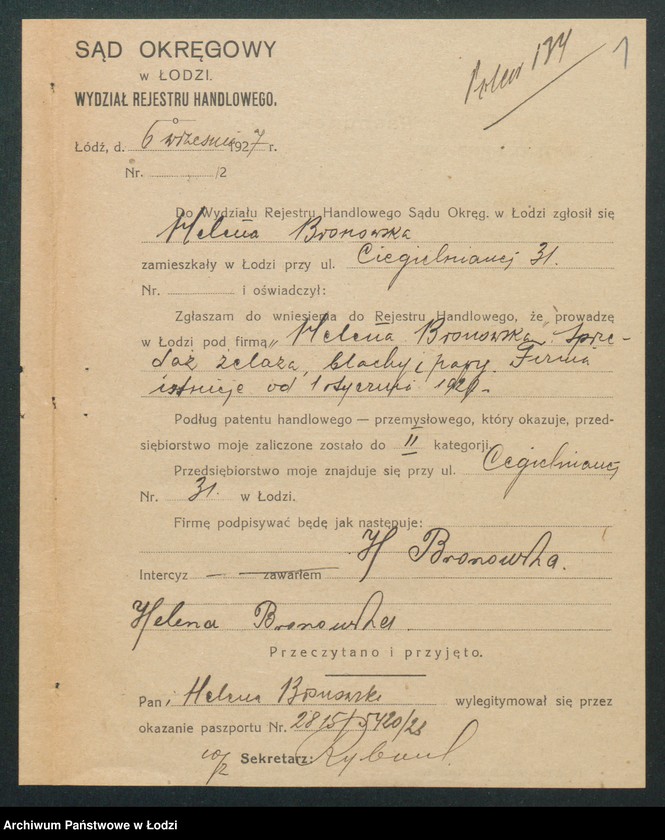 SĄD OKRĘGOWY
W ŁODZI.
WYDZIAŁ REJESTRU HANDLOWEGO.
1
Łódź, d. 6 września 1927 r.
Nr. /2
Do Wydziału Rejestru Handlowego Sądu Okręg. w Łodzi zgłosił się
Helena Bronowska
zamieszkały w Łodzi przy ul. Cegielnianej 31.
Nr. i oświadczył:
Zgłaszam do wniesienia do Rejestru Handlowego, że prowadzę
w Łodzi pod firmą „Helena Bronowska" sprze-
daż żelaza, blachy i papy. Firma
istnieje od 1 stycznia
Podług patentu handlowego — przemysłowego, który okazuje, przed-
siębiorstwo moje zaliczone zostało do II kategorji.
Przedsiębiorstwo moje znajduje się przy ul. Cegielnianej
Nr. 31. w Łodzi.
Firmę podpisywać będę jak następuje:
H Bronowska.
Intercyz — zawarłem
Helena Bronowska
Przeczytano i przyjęto.
Pan, Helena Bronowska wylegitymował się przez
okazanie paszportu Nr.
Sekretarz:
Archiwum Państwowe w Łodzi